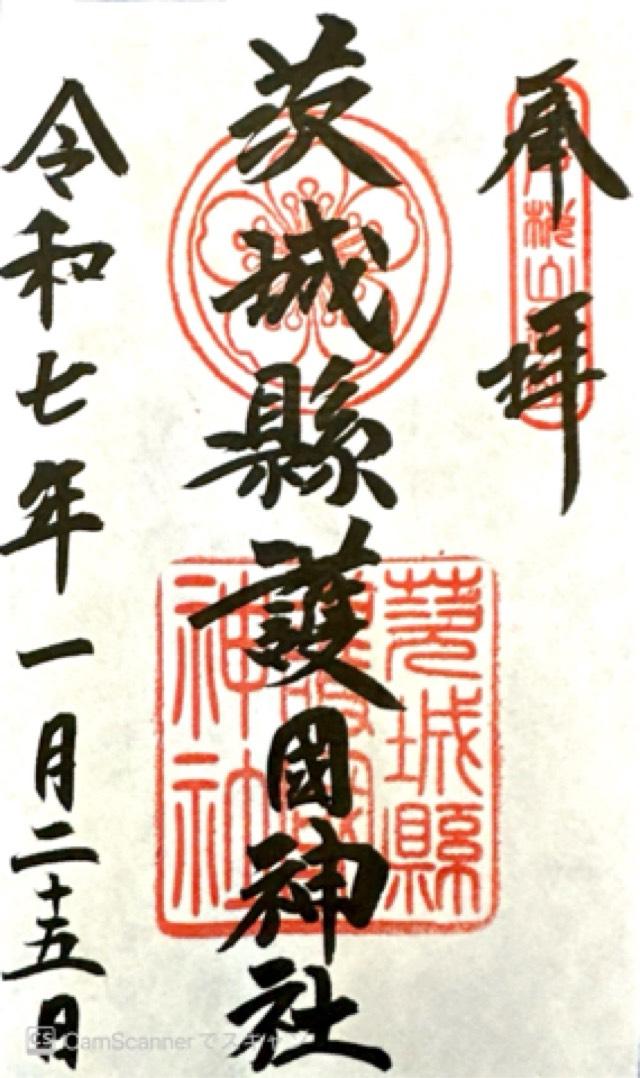 奉拝
茨城縣護國神社
令和七年一月二十五日
茨城縣
護國
神社
CS CamScannerでスキャン